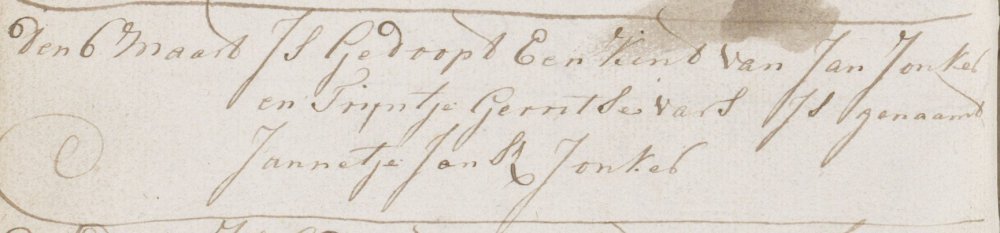 den 6 Maart Is Gedoopt Een Kind van Jan Jonker
en Trijntje Gerritse vars Is genaamt
Jannetje Jans Jonker